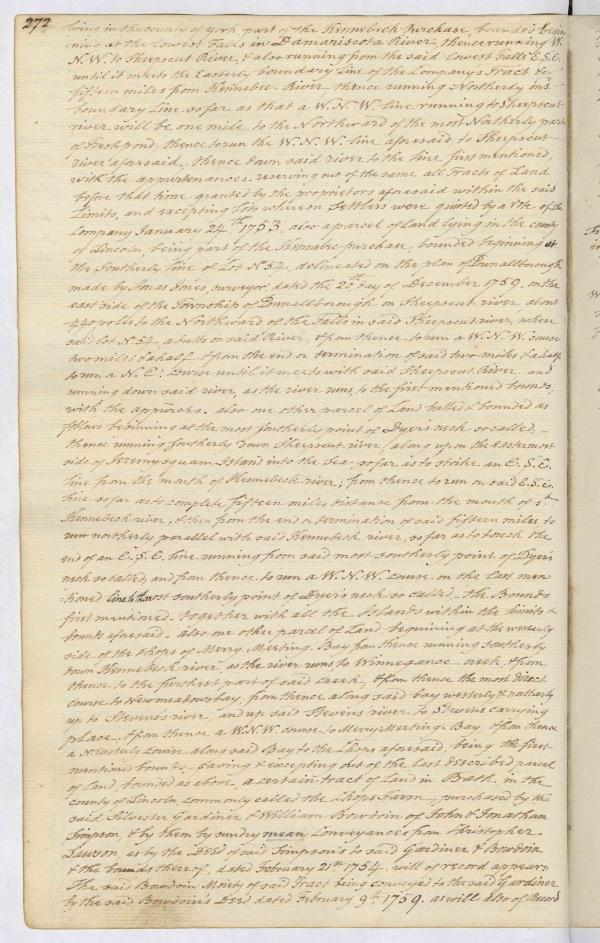 272
lying in the county of York part of the Kennebeck Purchase, bounded begin
ning at the lowest Falls in Damariscota River, thence running W.
N.W. to Sheepscut River, & also running from the said Lowest Falls E.S.E.
until it meets the Easterly boundary Line of the Company's Tract
fifteen miles from Kennebec River, thence running Northerly
boundary Line so far as that a W.N.W. line running to Sheepscut
river will be one mile to the Northward of the most Northerly part
of Fresh pond, thence to run the W.N.W. line aforesaid to Sheepscut
river aforesaid, thence down said river to the line first mentioned,
with the appurtenances reserving out of the same all Tracts of Land
before that time granted by the proprietors aforesaid within the said
Limits, and excepting Lots whereon Settlers were quieted by a Vte. of the
Company January 24th 1753. also a parcel of land lying in the county
of Lincoln, being part of the Kennebec purchase, bounded beginning at
the Southerly line of Lot No. 54. delineated on the plan of Pownallborough
made by Jonas Jones, surveyor, dated the 20th day of December 1759. on the
east side of the Township of Pownallborough on Sheepscut river about
440 poles to the Northward of the Falls in said Sheepscut river, where
said lot No. 54, abutts on said River, & from thence to run a W.N.W. course
two miles & a half & from the end or termination of said two miles & a half
to run a N.E. Course until it meets with said Sheepscut River and
running down said river, as the river runs, to the first mentioned bounds,
with the appurces. also one other parcel of Land butted & bounded as
follows beginning at the most southerly point of Dyer's neck so called
thence running Southerly down Sheepscut river (along upon the easternmost
side of Jeremysquam Island into the Sea, so far as to strike an E.S.E.
line from the mouth of Kennebeck river; from thence to run on said E.S.E.
line so far as to complete fifteen miles distance from the mouth of sd.
Kennebeck river, & then from the end or termination of said fifteen miles to
run northerly parallel with said Kennebeck river, so far as to touch the
end of an E.S.E. line running from said most southerly point of Dyer's
neck so called, and from thence to run a W.N.W. course on the last men
tioned line to the most southerly point of Dyer's neck so called the Bounds
first mentioned together with all the Islands within the limits &
bounds aforesaid also one other parcel of Land, beginning at the westerly
side of the Chops of Merry Meeting Bay from thence running southerly
down Kennebeck river, as the river runs to Winnegance creek, & from
thence to the furthest part of said creek, & from thence the most direct
course to New meadows bay, from thence along said bay westerly & northerly
up to Stevens's river, and up said Stevens' river to Stevens carrying
place. & from thence a W.N.W. course to Merry Meeting Bay, & from thence
a N. Easterly Course along said Bay to the Chops aforesaid, being the first
mentioned bounds saving & excepting out of the last described parcel
of Land, bounded as above, a certain tract of Land in Bath in the
county of Lincoln, commonly called the Chops Farm, purchased by the
said Silvester Gardiner & William Bowdoin of John & Jonathan
Simpson, & by them by sundry mean Conveyances from Christopher
Lawson, as by the Deed of said Simpson's to said Gardiner & Bowdoin
& the bounds thereof, dated February 21st 1754. will of record appear.
The said Bowdoin Moiety of said Tract being conveyed to the said Gardiner
by the said Bowdoin's Deed dated February 9th 1759. as will also of Record